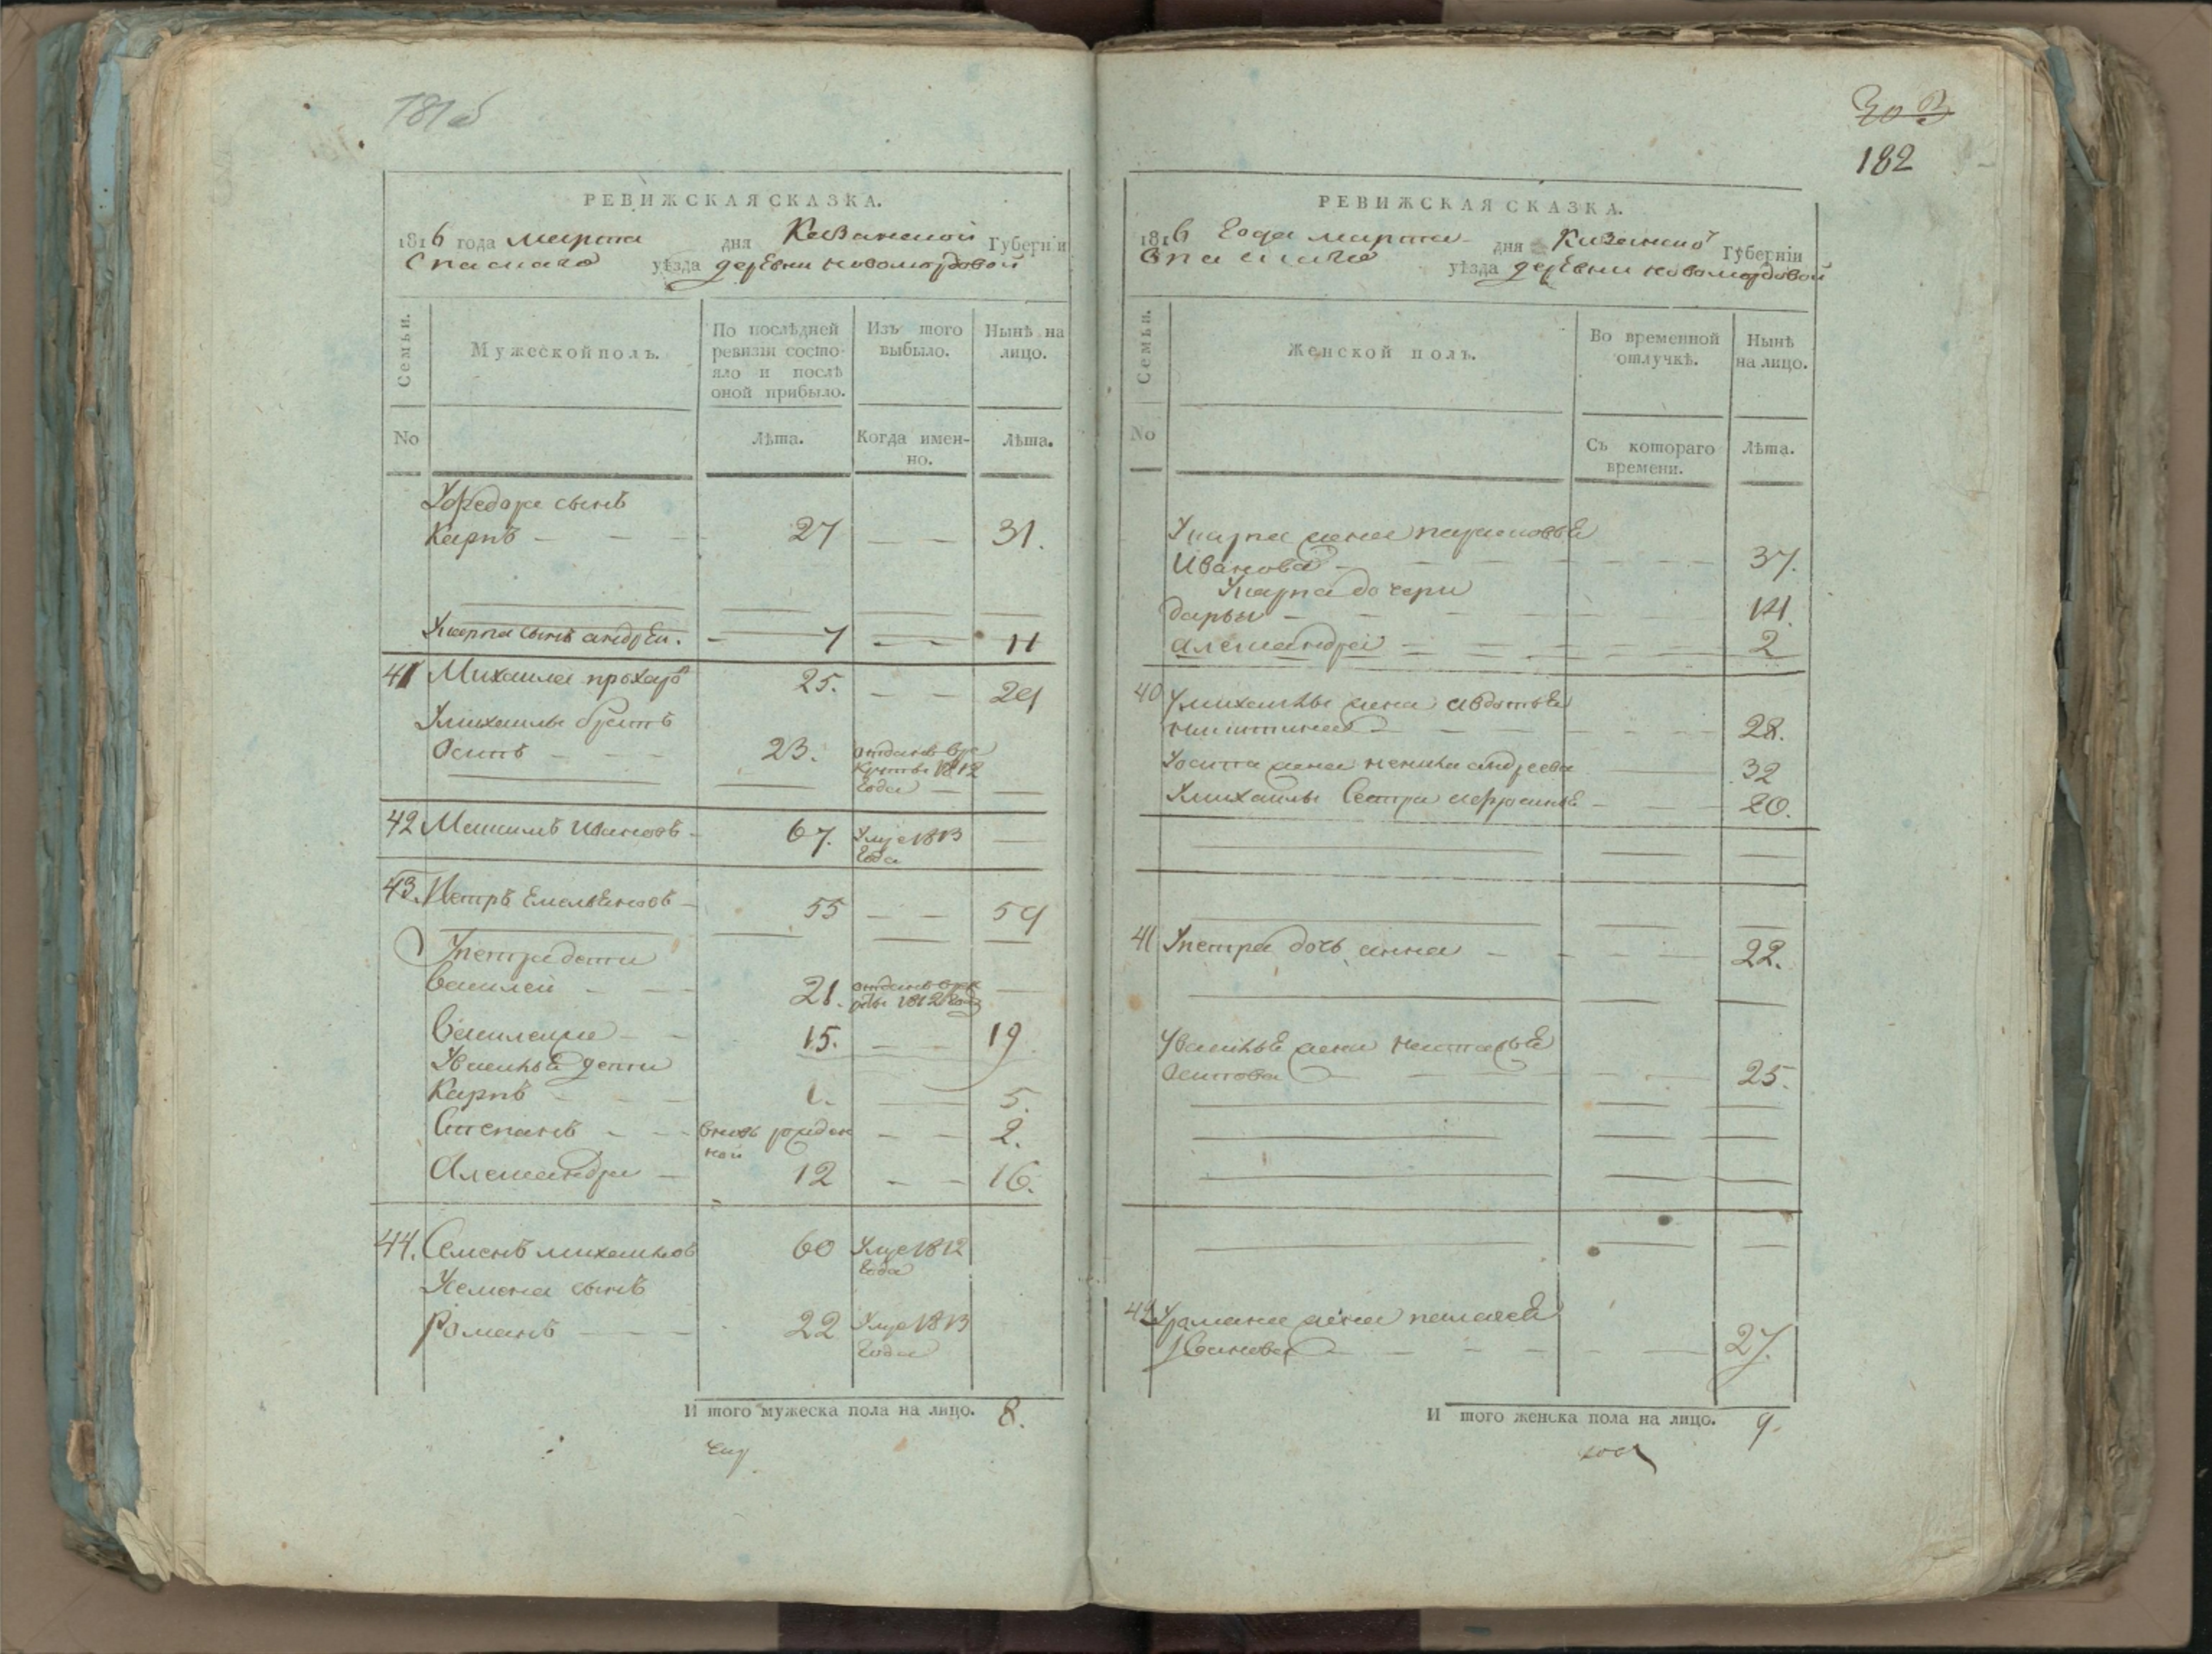 181 об
РЕВИЖСКАЯ СКАЗКА.
1816 года марта дня Казанской Губерніи
Спаскаго уѣзда деревни новомордовой
Семьи.
Мужеской полъ.
По послѣдней
ревизіи состо-
яло и послѣ
оной прибыло.
Изъ того
выбыло.
Нынѣ на
лицо.
No
Лѣта.
Когда имен-
но.
Лѣта.
Уфедора сынъ
Карпъ 27 31.
Укарпа сынъ андрей. 7 11
41 Михаила прохаро 25. 29
Умихаилы братъ
Осипъ 23. отданъ вре
круты 1812
года
42 Максимъ Ивановъ 67. Умре 1813
года
43. Петръ Емельяновъ 55 59
Упетра дети
Василей 21. отданъ врек
руты 1812 года
Василеи 15. 19
Увасилья дети
Карпъ 1. 5.
Степанъ вновь рожден 2.
ной
Александра 12 16.
44. Семенъ михаиловъ 60 Умре 1812
года
Усемена сынъ
Романъ 22 Умре 1813
года
И того мужеска пола на лицо. 8.
303
182
РЕВИЖСКАЯ СКАЗКА.
1816 года марта дня Казанской Губерніи
Спаскаго уѣзда деревни новомордовой
Семьи.
Женской полъ.
Во временной
отлучкѣ.
Нынѣ
на лицо.
No
Съ котораго
времени.
Лѣта.
Укарпа жена парасковья
Иванова 37.
Укарпа дочери
дарья 14.
александра 2
40 Умихаилы жена авдотья
никитина 28.
Уосипа жена ненила андреева 32
Умихаилы сестра афросинья 20.
41 Упетра дочь анна 22.
Увасилья жена наталья
Осипова 25.
42 Уромана жена палагея
Иванова 27.
И того женска пола на лицо. 9.